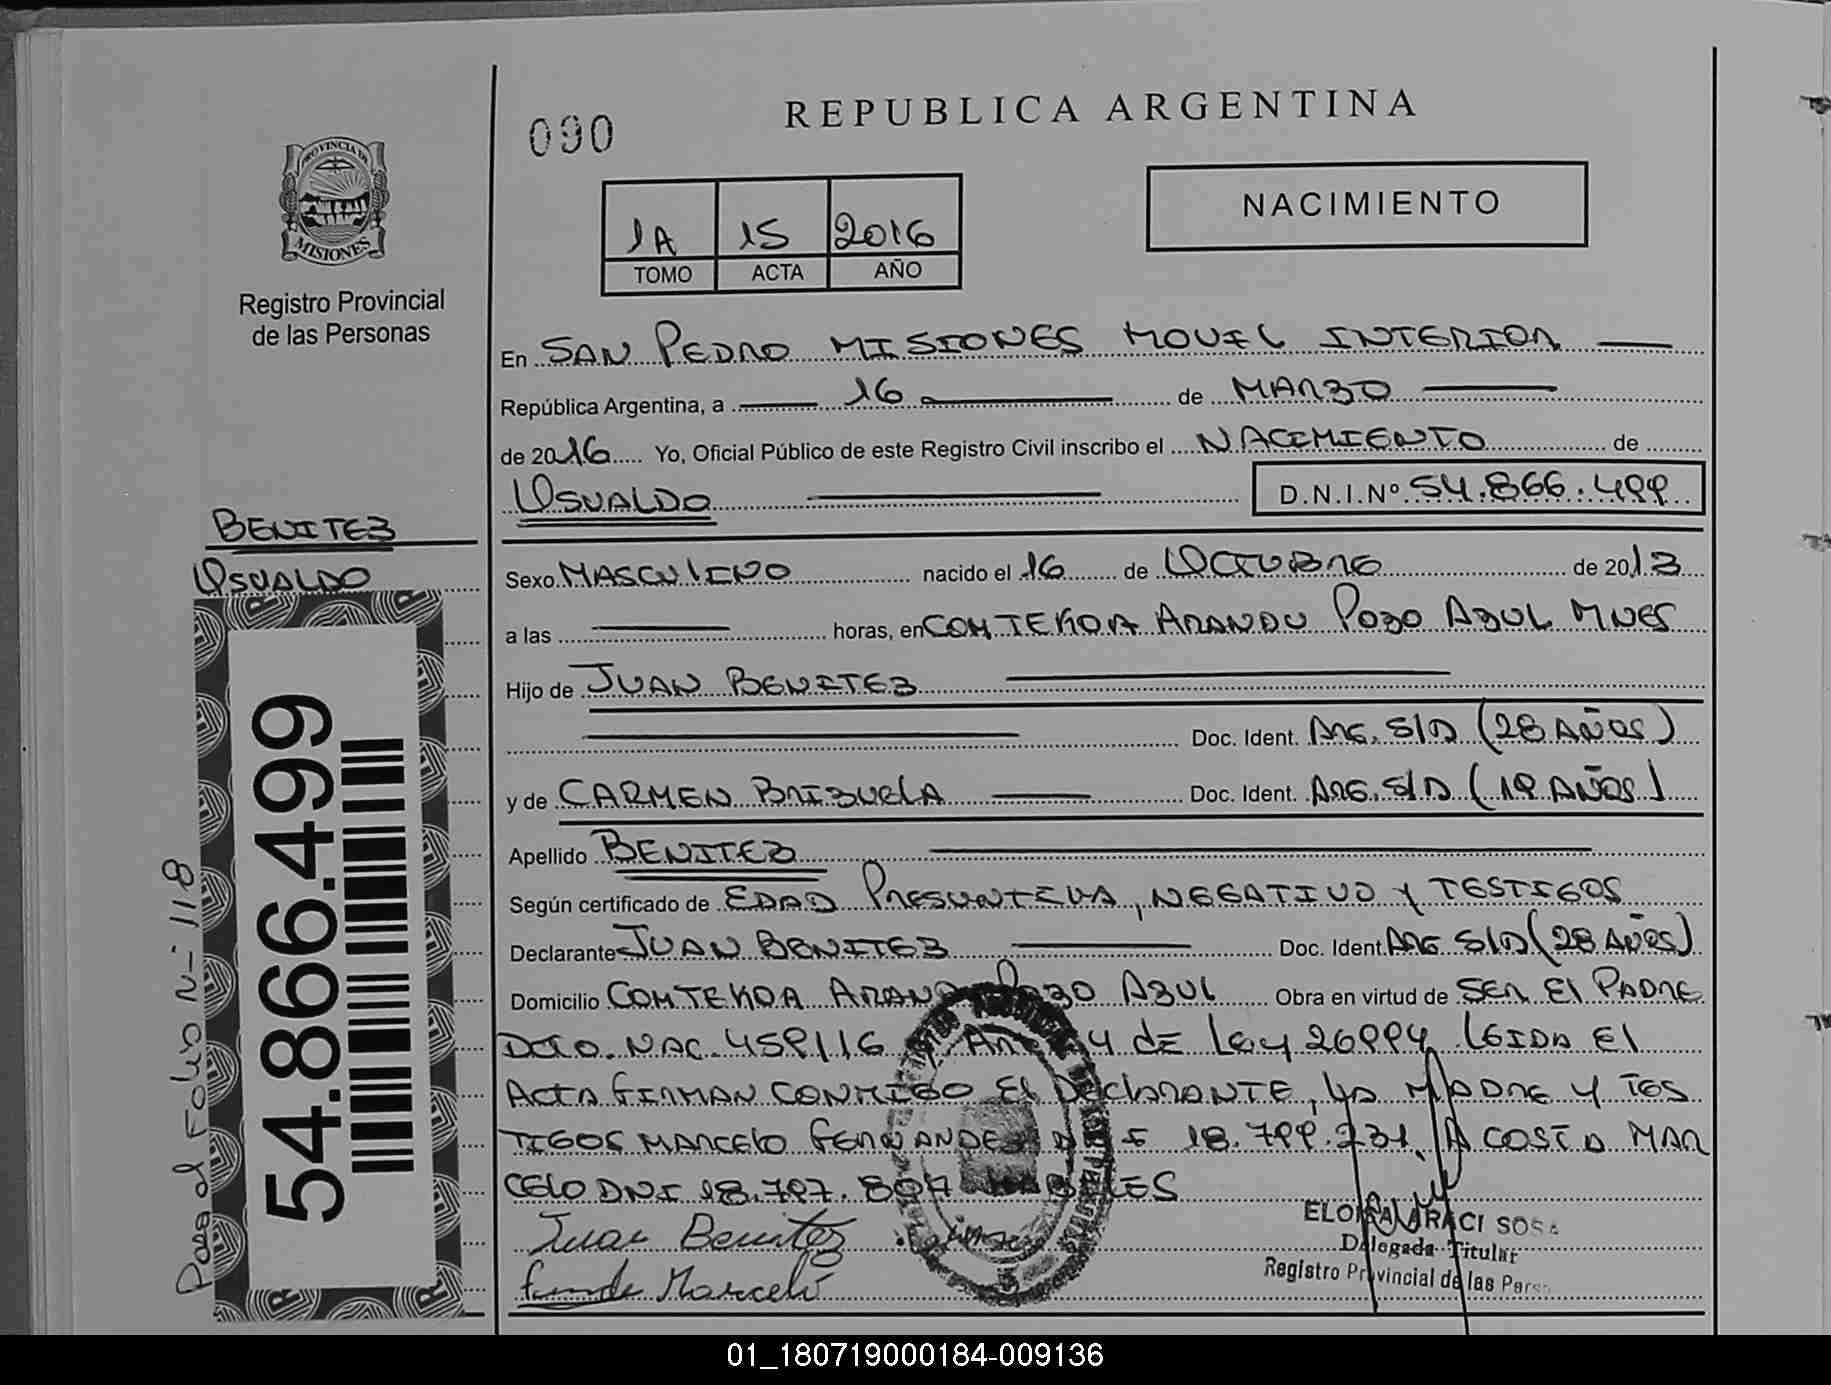 REPUBLICA ARGENTINA
090
PROVINCIA DE
MISIONES
Registro Provincial
de las Personas
1A 15 2016
TOMO ACTA AÑO
NACIMIENTO
En SAN PEDRO MISIONES MOVIL INTERIOR
República Argentina, a 16 de MARZO
de 2016 Yo, Oficial Público de este Registro Civil inscribo el NACIMIENTO de
OSVALDO D.N.I.Nº 54.866.499
BENITEZ
OSVALDO
Sexo MASCULINO nacido el 16 de OCTUBRE de 2013
a las horas, en COM TEKOA ARANDU POZO AZUL MNES
Hijo de JUAN BENITEZ
Doc. Ident. ARG. S/D (28 AÑOS)
y de CARMEN BRIZUELA Doc. Ident. ARG. S/D (19 AÑOS)
Apellido BENITEZ
Según certificado de EDAD PRESUNTIVA, NEGATIVO Y TESTIGOS
Declarante JUAN BENITEZ Doc. Ident. ARG S/D (28 AÑOS)
Domicilio COM TEKOA ARAND POZO AZUL Obra en virtud de SER El PADRE
DCTO. NAC. 459/16 4 DE Ley 26994 LEIDA El
ACTA FIRMAN CONMIGO El DEClARANTE, LA MADRE Y TES
TIGOS MARCELO FERNANDEZ 18.799.231 ACOSTA MAR
CELO DNI 18.797.807
Juan Benitez
Marcelo
ELOISA IRACI SOSA
Delegada Titular
Registro Provincial de las Pers
54.866.499
Pasa al Folio Nº 118
01_180719000184-009136